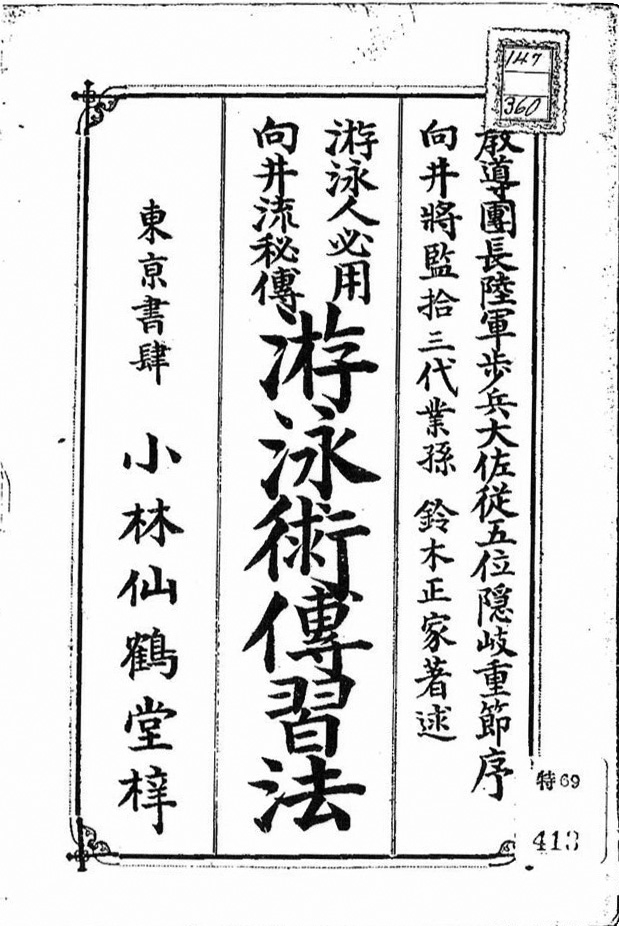 教導團長陸軍歩兵大佐従五位隠岐重節序
向井將監拾三代業孫 鈴木正家著述
游泳人必用
向井流秘傳
游泳術傳習法
東京書肆 小林仙鶴堂梓
147
360
特69
413